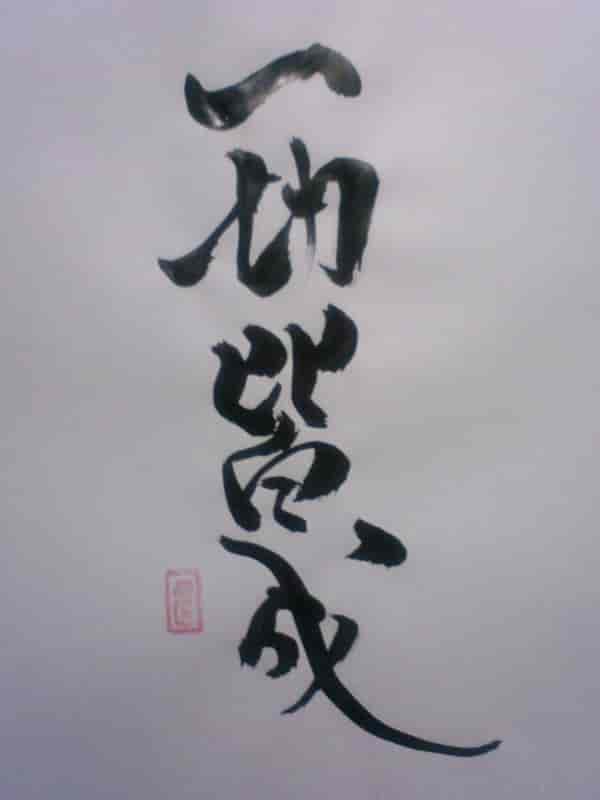 一切皆成